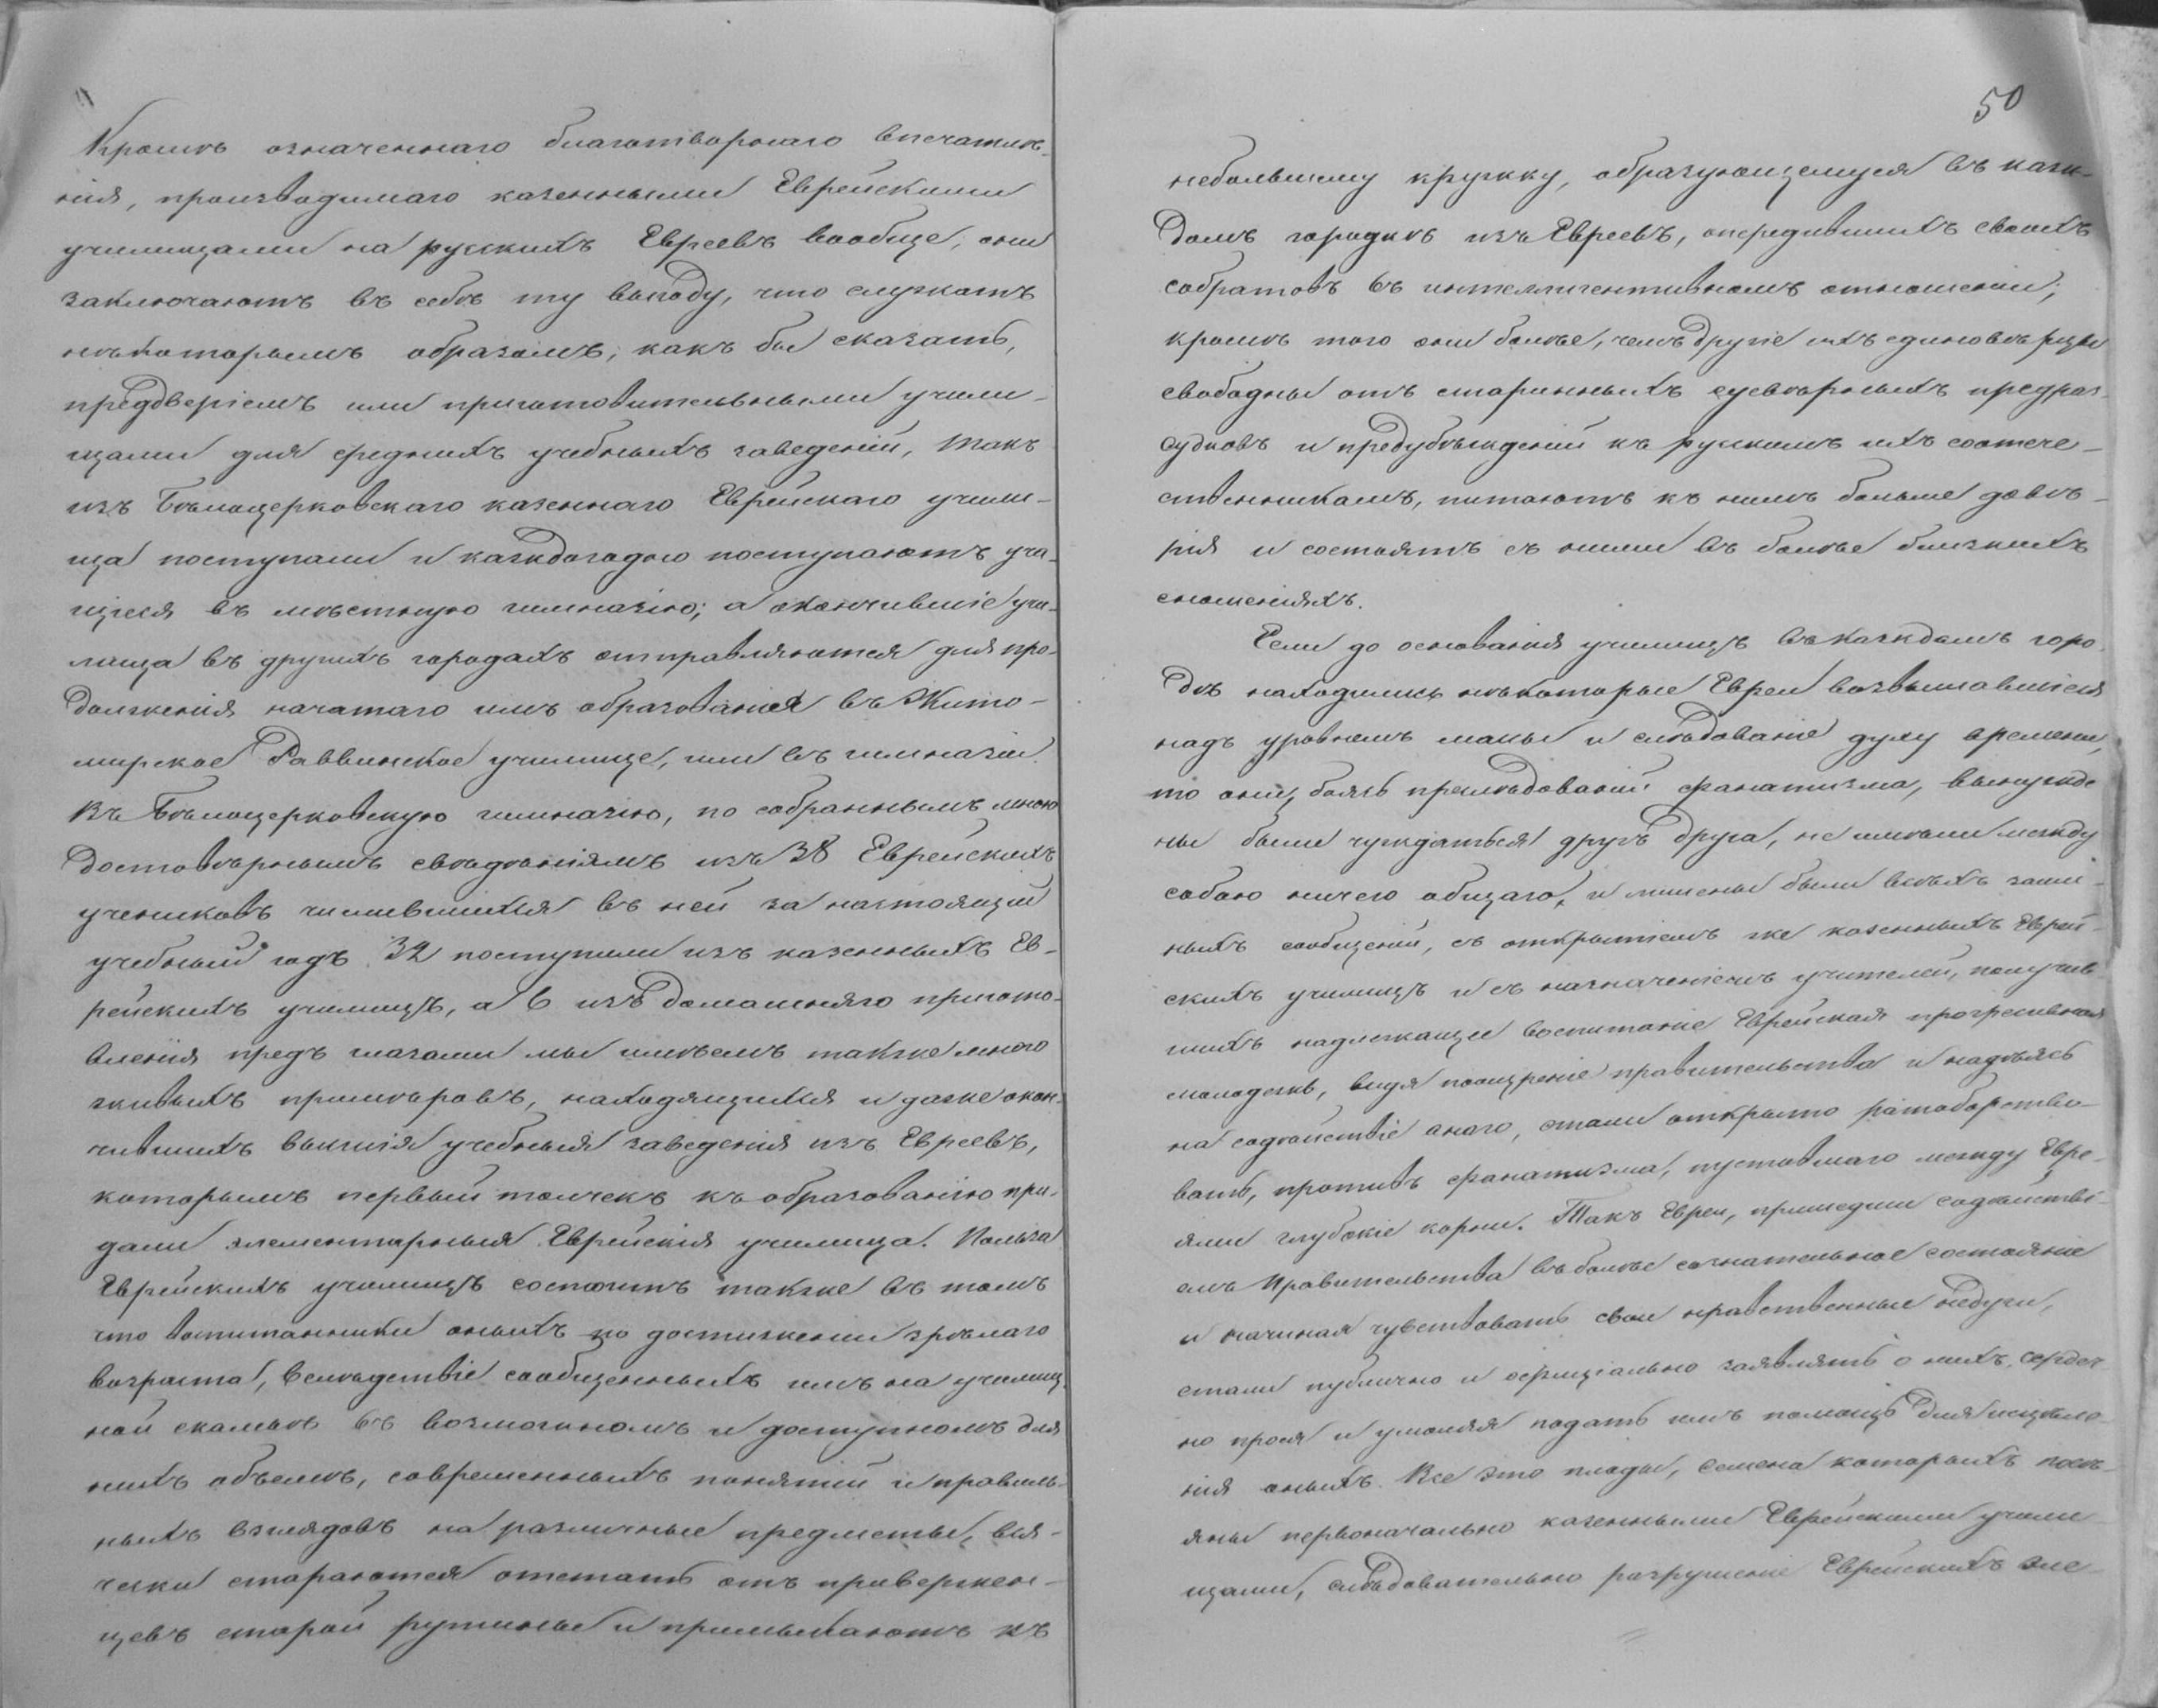 Кромѣ означеннаго благотворнаго впечатлѣ-
нія, производимаго казенными Еврейскими
училищами на русскихъ Евреевъ вообще, они
заключаютъ въ себѣ ту выгоду, что служатъ
нѣкоторымъ образомъ, какъ бы сказать,
предверіемъ или приготовительными учили-
щами для среднихъ учебныхъ заведеній, такъ
изъ Бѣлоцерковскаго казеннаго Еврейскаго учили-
ща поступали и каждогодно поступаютъ уча-
щіеся въ мѣстную гимназію; а окончившіе учи-
лища въ другихъ городахъ отправляются для про-
долженія начатаго имъ образованія въ Жито-
мирское Раввинское училище, или въ гимназіи.
Въ Бѣлоцерковскую гимназію, по собраннымъ мною
достовѣрнымъ свѣдѣніямъ изъ 38 Еврейскихъ
учениковъ числившихся въ ней за настоящій
учебный годъ 32 поступили изъ казенныхъ Ев-
рейскихъ училищъ, а 6 изъ домашняго пригото-
вленія предъ глазами мы имѣемъ также много
живыхъ примѣровъ, находящихся и даже окон-
чившихъ высшія учебныя заведенія изъ Евреевъ,
которымъ первый толчекъ къ образованію при-
дали элементарныя Еврейскія училища. Польза
Еврейскихъ училищъ состоитъ также въ томъ
что воспитанники оныхъ по достиженіи зрѣлаго
возраста, вслѣдствіе сообщенныхъ имъ на училищ-
ной скамьѣ въ возможномъ и доступномъ для
нихъ объемѣ, современныхъ понятій и правиль-
ныхъ взглядовъ на различные предметы, вся-
чески стараются отстать отъ привержен-
цевъ старой рутины и примыкаютъ къ
50
небольшому кружку, образующемуся въ каж-
домъ городкѣ изъ Евреевъ, опередившихъ своихъ
собратовъ въ интеллигентивномъ отношеніи;
кромѣ того они болѣе, чемъ другіе ихъ единовѣрцы
свободны отъ старинныхъ суевѣрныхъ предраз-
судковъ и предубѣжденій къ русскимъ ихъ соотече-
ственникамъ, питаютъ къ нимъ больше довѣ-
рія и состоятъ съ ними въ болѣе близкихъ
сношеніяхъ.
Если до основанія училищъ въ каждомъ горо-
дѣ находились нѣкоторые Евреи возвышавшіеся
надъ уровнемъ массы и слѣдованіе духу времени,
то они, боясь преслѣдованій фанатизма, вынужде
ны были чуждаться другъ друга, не имѣли между
собою ничего общаго, и лишены были всѣхъ
ныхъ сообщеній, съ открытіемъ же казенныхъ Еврей-
скихъ училищъ и съ назначеніемъ учителей, получив-
шихъ надлежащее воспитаніе Еврейская прогресивная
молодежь, видя поощреніе правительства и надѣясь
на содѣйствіе онаго, стали открыто ратоборство-
вать, противъ фанатизма, пустившаго между Евре-
ями глубокіе корни. Такъ Евреи, пришедши содѣйстві-
емъ Правительства въ болѣе сознательное состояніе
и начиная чувствовать свои нравственные недуги,
стали публично и оффиціально заявлять о нихъ, сердеч-
но прося и умоляя подать имъ помощь для исцѣле-
нія оныхъ. Все это плоды, семена которыхъ посѣ-
яны первоначально казенными Еврейскими учили-
щами, слѣдовательно разрушеніе Еврейскихъ эле-